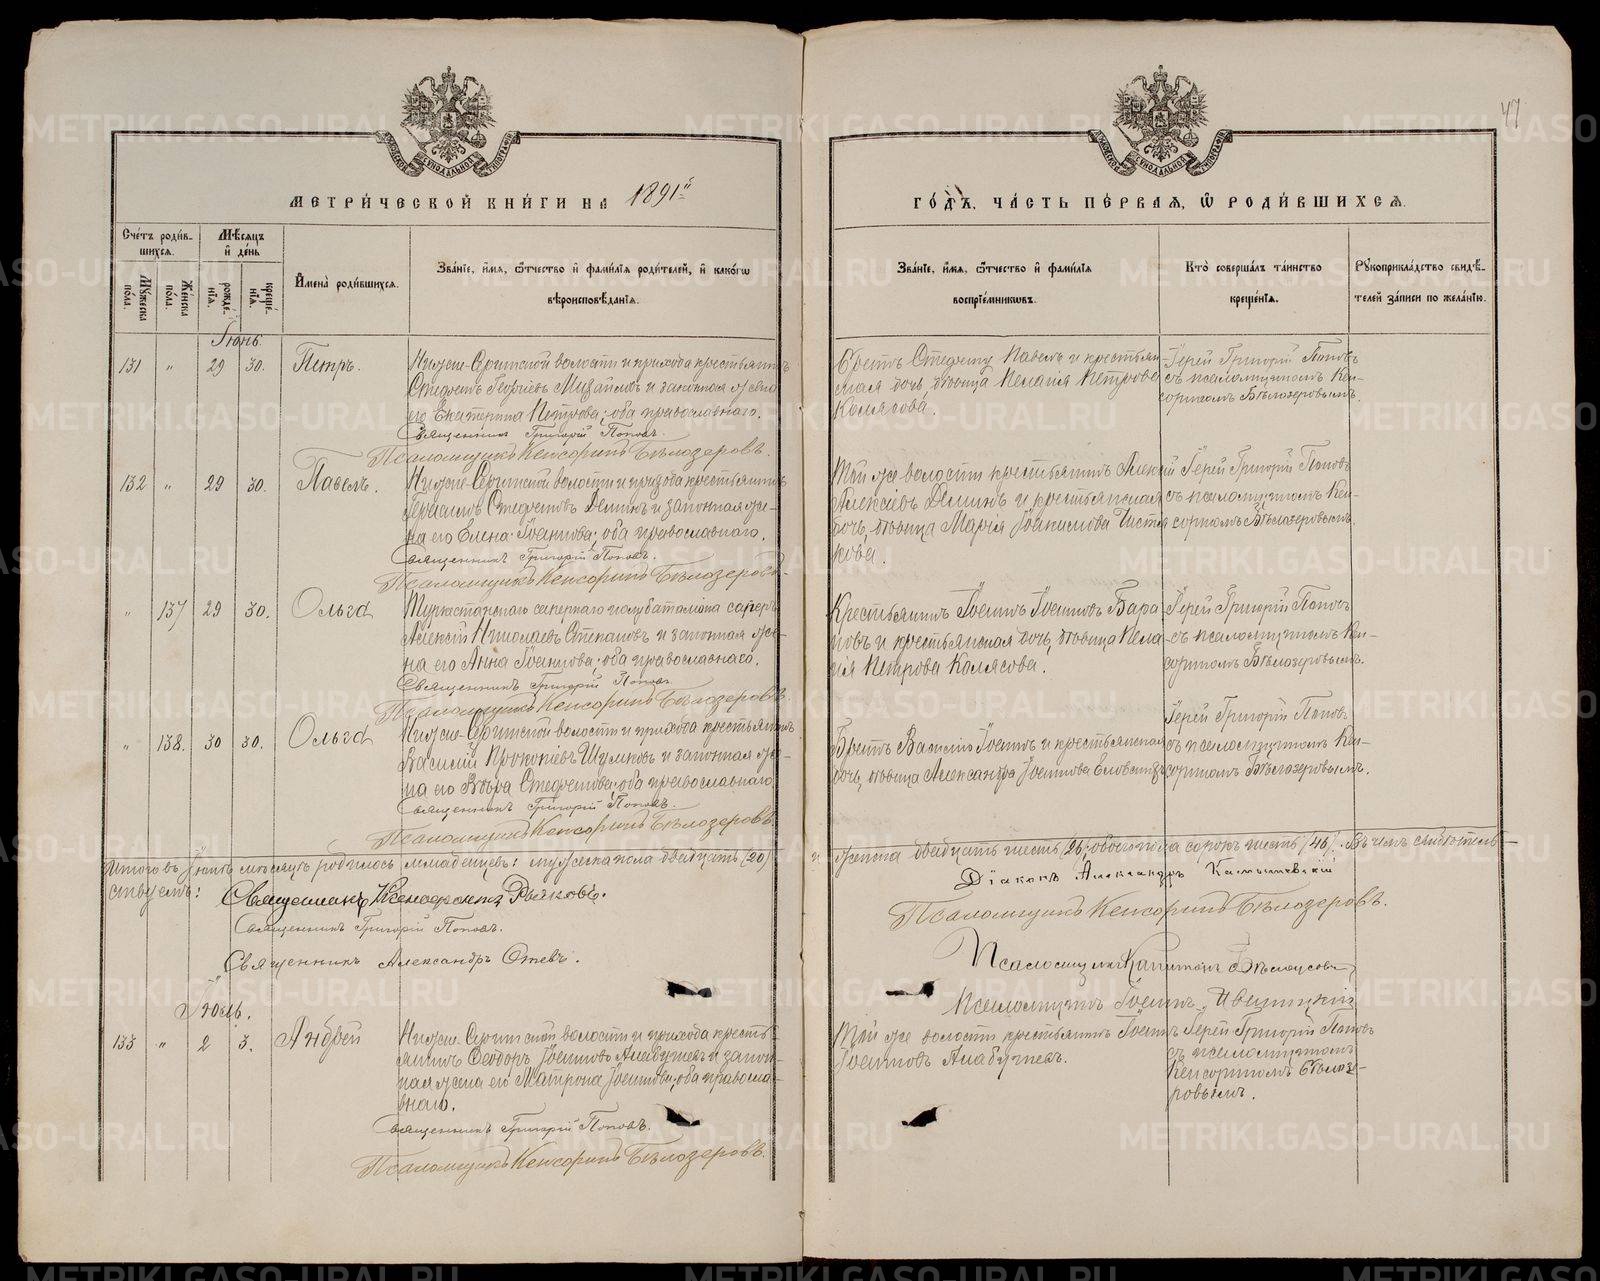 47
МЕТРИ́ЧЕСКОЙ КНИ́ГИ НА 1891й
ГО́ДЪ, ЧА́СТЬ ПЕ́РВАЯ, Ѡ РОДИ́ВШИХСЯ.
Сче́тъ роди́в-
шихся.
Мѣ́сяцъ
и́ де́нь
Му́жеска по́ла.
Же́нска по́ла.
рожде́нїя.
креще́нїя.
И҆мена̀ роди́вшихся.
Зва́нїе, и҆́мя, ѻ҆́тчество и҆ фами́лїя роди́телей, и҆ како́гѡ
вѣроисповѣ́данїя.
Зва́нїе, и҆́мя, ѻ҆́тчество и҆ фами́лїя
воспрїе́мниковъ.
Кто̀ соверша́лъ та́инство
креще́нїя.
Рꙋкоприкла́дство свидѣ́-
телей за́писи по жела́нїю.
Іюнь.
131 " 29 30. Петръ.
Нижне-Сергинской волости и прихода крестьянинъ
Георгіевъ и законная жена
его Екатерина Петрова; оба православнаго.
Священникъ Григорій Поповъ.
Псаломщикъ Кенсоринъ Бѣлозеровъ.
Павелъ и крестьян-
ская дочь, дѣвица Пелагія Петрова
Колясова.
Іерей Григорій Поповъ
съ псаломщикомъ Кен-
сориномъ Бѣлозеровымъ.
132 " 29 30. Павелъ.
Нижне-Сергинской волости и прихода крестьянинъ
Деминъ и законная же-
на его Елена Іоаннова; оба православнаго.
Священникъ Григорій Поповъ.
Псаломщикъ Кенсоринъ Бѣлозеровъ.
Той же волости крестьянинъ Алексѣй
Алексѣевъ Деминъ и крестьянская
дочь, дѣвица Марія Чистя-
кова.
Іерей Григорій Поповъ
съ псаломщикомъ Кен-
сориномъ Бѣлозеровымъ.
" 137 29 30. Ольга
Туркестанскаго сапернаго полубатальона саперъ
Алексѣй Николаевъ Степановъ и законная же-
на его Анна Іоаннова; оба православнаго.
Священникъ Григорій Поповъ
Псаломщикъ Кенсоринъ Бѣлозеровъ.
Крестьянинъ Іоаннъ Іоанновъ Бара-
новъ и крестьянская дочь, дѣвица Пела-
гія Петрова Колясова.
Іерей Григорій Поповъ
съ псаломщикомъ Кен-
сориномъ Бѣлозеровымъ.
" 138. 30 30. Ольга
Нижне-Сергинской волости и прихода крестьянинъ
Василій Прокопіевъ Шумковъ и законная же-
на его Вѣра оба православнаго
Священникъ Григорій Поповъ.
Псаломщикъ Кенсоринъ Бѣлозеровъ.
Братъ Василія Іоаннъ и крестьянская
дочь, дѣвица Александра Іоаннова
Іерей Григорій Поповъ
съ псаломщикомъ Кен-
сориномъ Бѣлозеровымъ.
Итого въ Іюнѣ мѣсяцѣ родилось младенцевъ: мужеска пола двадцать (20)
и женска двадцать шесть (26), обоего пола сорокъ шесть (46). Въ чемъ свидѣтель-
ствуемъ:
Священникъ Ксенофонтъ
Священникъ Григорій Поповъ.
Священникъ Александръ
Діаконъ Александръ
Псаломщикъ Кенсоринъ Бѣлозеровъ.
Псаломщикъ Капитонъ Бѣлоусовъ
Псаломщикъ Іоаннъ
Іюль.
133 " 2 3. Андрей
Нижне-Сергинской волости и прихода кресть-
янинъ Ѳеодоръ Іоанновъ Алабужевъ и закон-
ная жена его Матрона Іоаннова; оба православ-
наго.
Священникъ Григорій Поповъ.
Псаломщикъ Кенсоринъ Бѣлозеровъ.
Той же волости крестьянинъ Іоаннъ
Іоанновъ Алабужевъ.
Іерей Григорій Поповъ
съ псаломщикомъ
Кенсориномъ Бѣлозе-
ровымъ.
METRIKI.GASO-URAL.RU